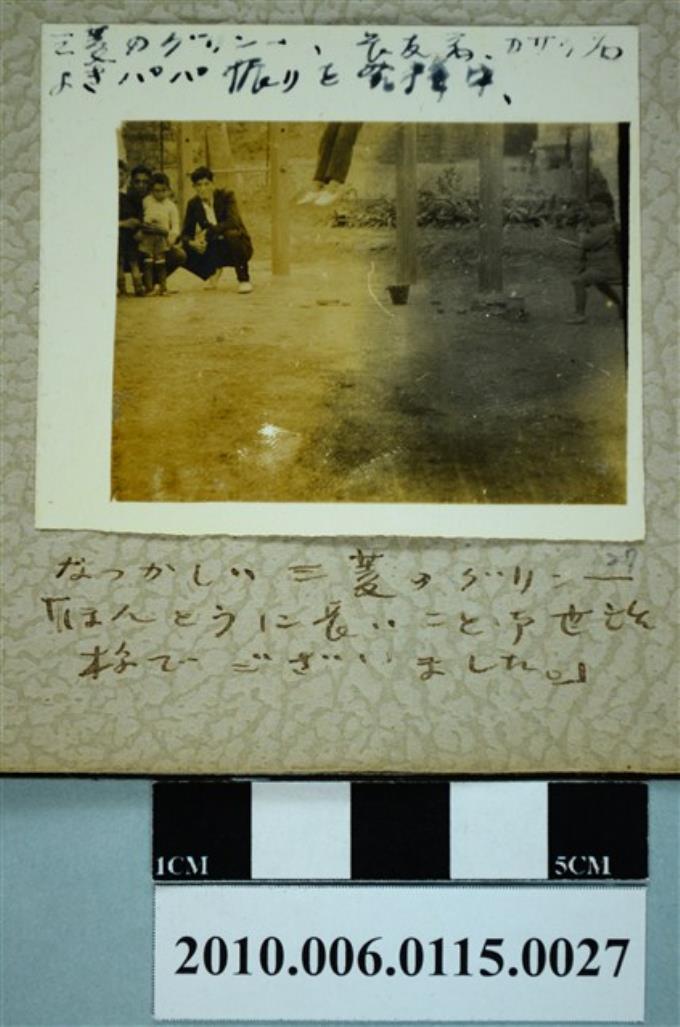 三菱のグリンー、長友君、カサイ君
よきパパ振りを発揮中、
27
なつかしい三菱のグリンー
「ほんとうに長いこと御世話
様でございました。」
1CM
5CM
2010.006.0115.0027